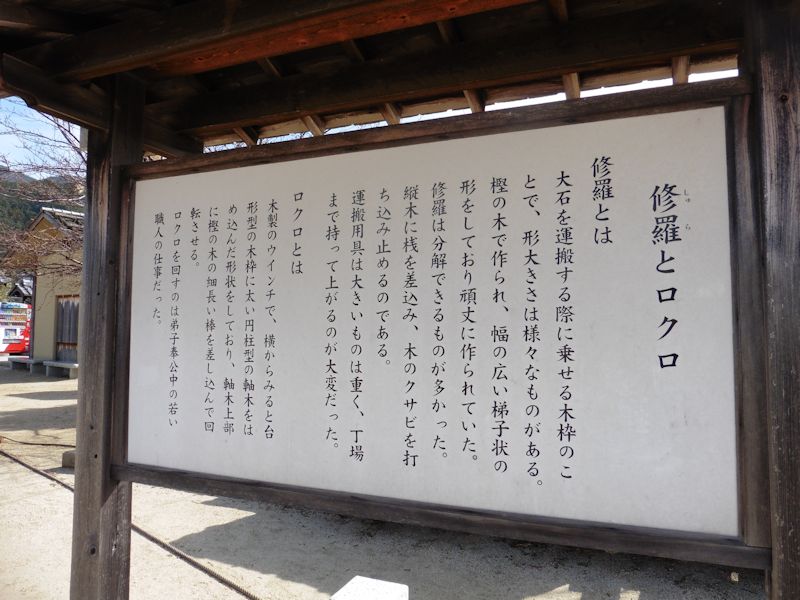 修羅とロクロ
しゅら
修羅とは
大石を運搬する際に乗せる木枠のこ
とで、形大きさは様々なものがある。
樫の木で作られ、幅の広い梯子状の
形をしており頑丈に作られていた。
修羅は分解できるものが多かった。
縦木に桟を差込み、木のクサビを打
ち込み止めるのである。
運搬用具は大きいものは重く、丁場
まで持って上がるのが大変だった。
ロクロとは
木製のウインチで、横からみると台
形型の木枠に太い円柱型の軸木をは
め込んだ形状をしており、軸木上部
に樫の木の細長い棒を差し込んで回
転させる。
ロクロを回すのは弟子奉公中の若い
職人の仕事だった。